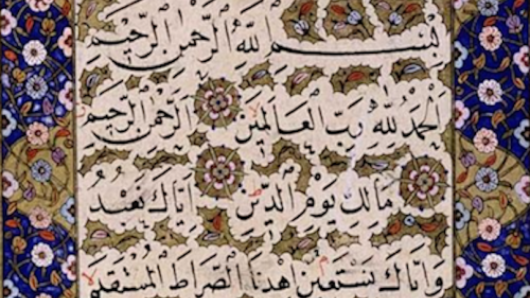 بِسْمِ اللّٰهِ الرَّحْمٰنِ الرَّحِيمِ
اَلْحَمْدُ لِلّٰهِ رَبِّ الْعَالَمِينَ الرَّحْمٰنِ الرَّحِيمِ
مَالِكِ يَوْمِ الدِّينِ اِيَّاكَ نَعْبُدُ
وَاِيَّاكَ نَسْتَعِينُ اِهْدِنَا الصِّرَاطَ الْمُسْتَقِيمَ